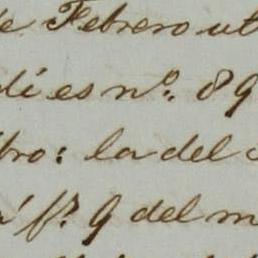 de Febrero ut
di es nº. 89
bro: la del
fº. 9 del m